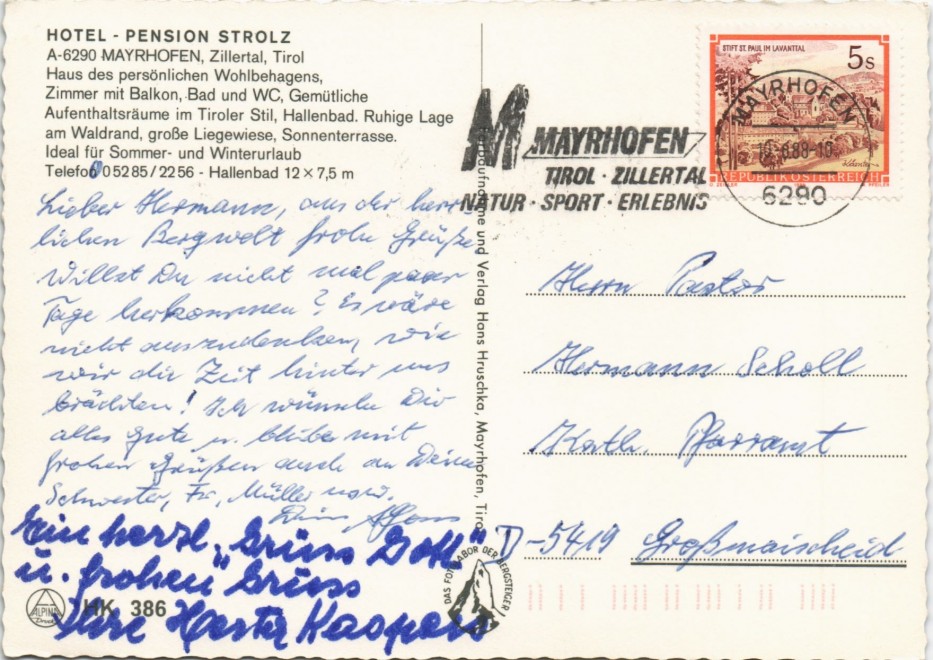 HOTEL - PENSION STROLZ
A-6290 MAYRHOFEN, Zillertal, Tirol
Haus des persönlichen Wohlbehagens,
Zimmer mit Balkon, Bad und WC, Gemütliche
Aufenthaltsräume im Tiroler Stil, Hallenbad. Ruhige Lage
am Waldrand, große Liegewiese, Sonnenterrasse.
Ideal für Sommer- und Winterurlaub
Telefon 05285/2256 - Hallenbad 12 × 7,5 m
Lieber Hermann, aus der herr-
lichen Bergwelt frohe Grüße
Willst Du nicht mal paar
Tage herkommen? Es wäre
nicht auszudenken, wie
wir die Zeit hinter uns
brächten! Ich wünsche Dir
alles Gute u. bleibe mit
frohen Grüßen auch an Deine
Schwester, Fr. Müller usw.
Dein
Ein herzl. "Grüss Gott"
u. frohen Gruss
Ihre
ALPINA
Druck
HK 386
und Verlag Hans Hruschka, Mayrhofen, Tirol
DAS FOTOLABOR DER BERGSTEIGER
M MAYRHOFEN
TIROL · ZILLERTAL
NATUR · SPORT · ERLEBNIS
STIFT ST. PAUL IM LAVANTTAL
5s
Kärnten
REPUBLIK ÖSTERREICH
MAYRHOFEN
6290
Herrn Pastor
Hermann Scholl
Kath. Pfarramt
D-5419 Großmaischeid